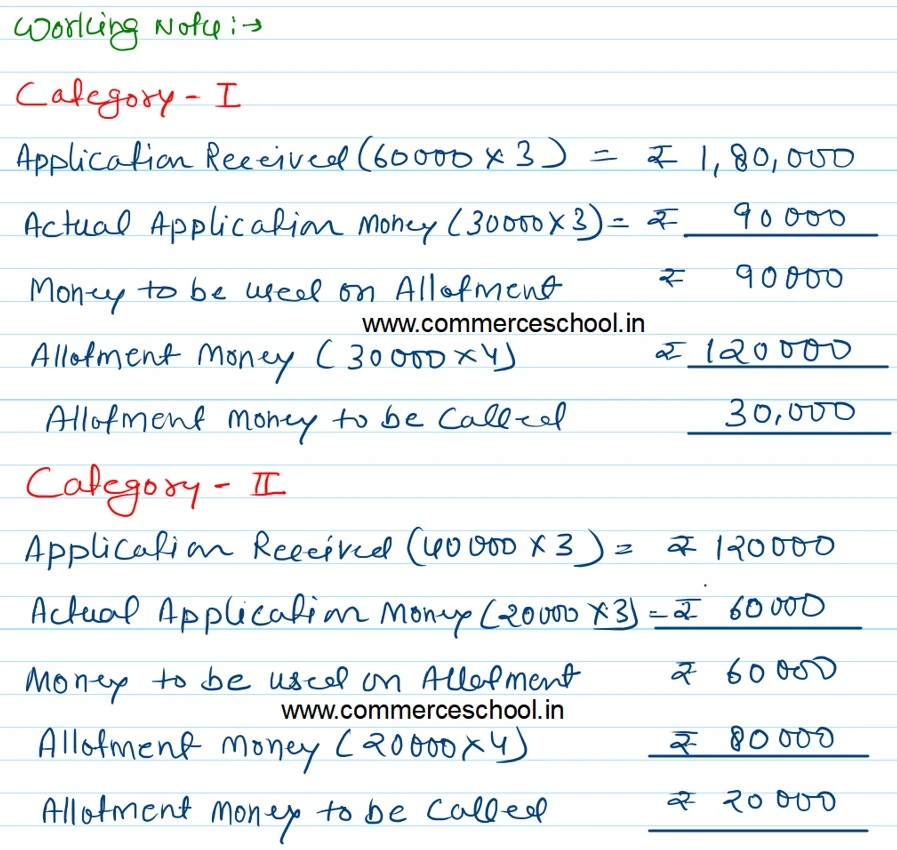 Working Note :→
Category - I
Application Received (60000 × 3) = ₹ 1,80,000
Actual Application Money (30000 × 3) = ₹ 90000
Money to be used on Allotment ₹ 90000
www.commerceschool.in
Allotment Money (30000 × 4) ₹ 120000
Allotment Money to be Called 30,000
Category - II
Application Received (40000 × 3) = ₹ 120000
Actual Application Money (20000 × 3) = ₹ 60000
Money to be used on Allotment ₹ 60000
www.commerceschool.in
Allotment Money (20000 × 4) ₹ 80000
Allotment Money to be Called ₹ 20000